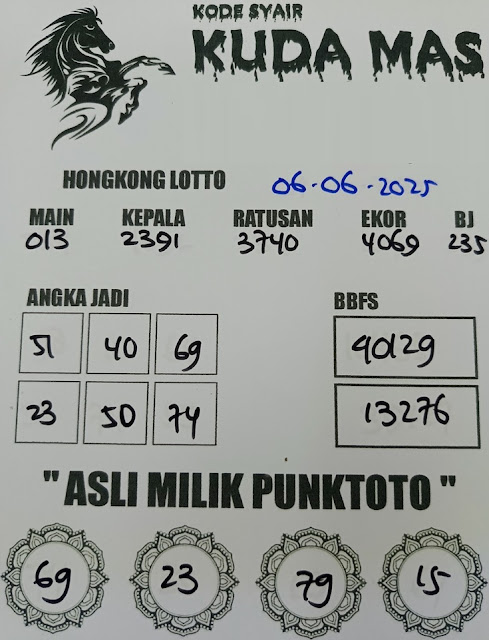 KODE SYAIR
KUDA MAS
HONGKONG LOTTO 06-06-2025
MAIN KEPALA RATUSAN EKOR BJ
013 2391 3740 4069 235
ANGKA JADI BBFS
51 40 69 40129
23 50 74 13276
" ASLI MILIK PUNKTOTO "
69 23 79 15